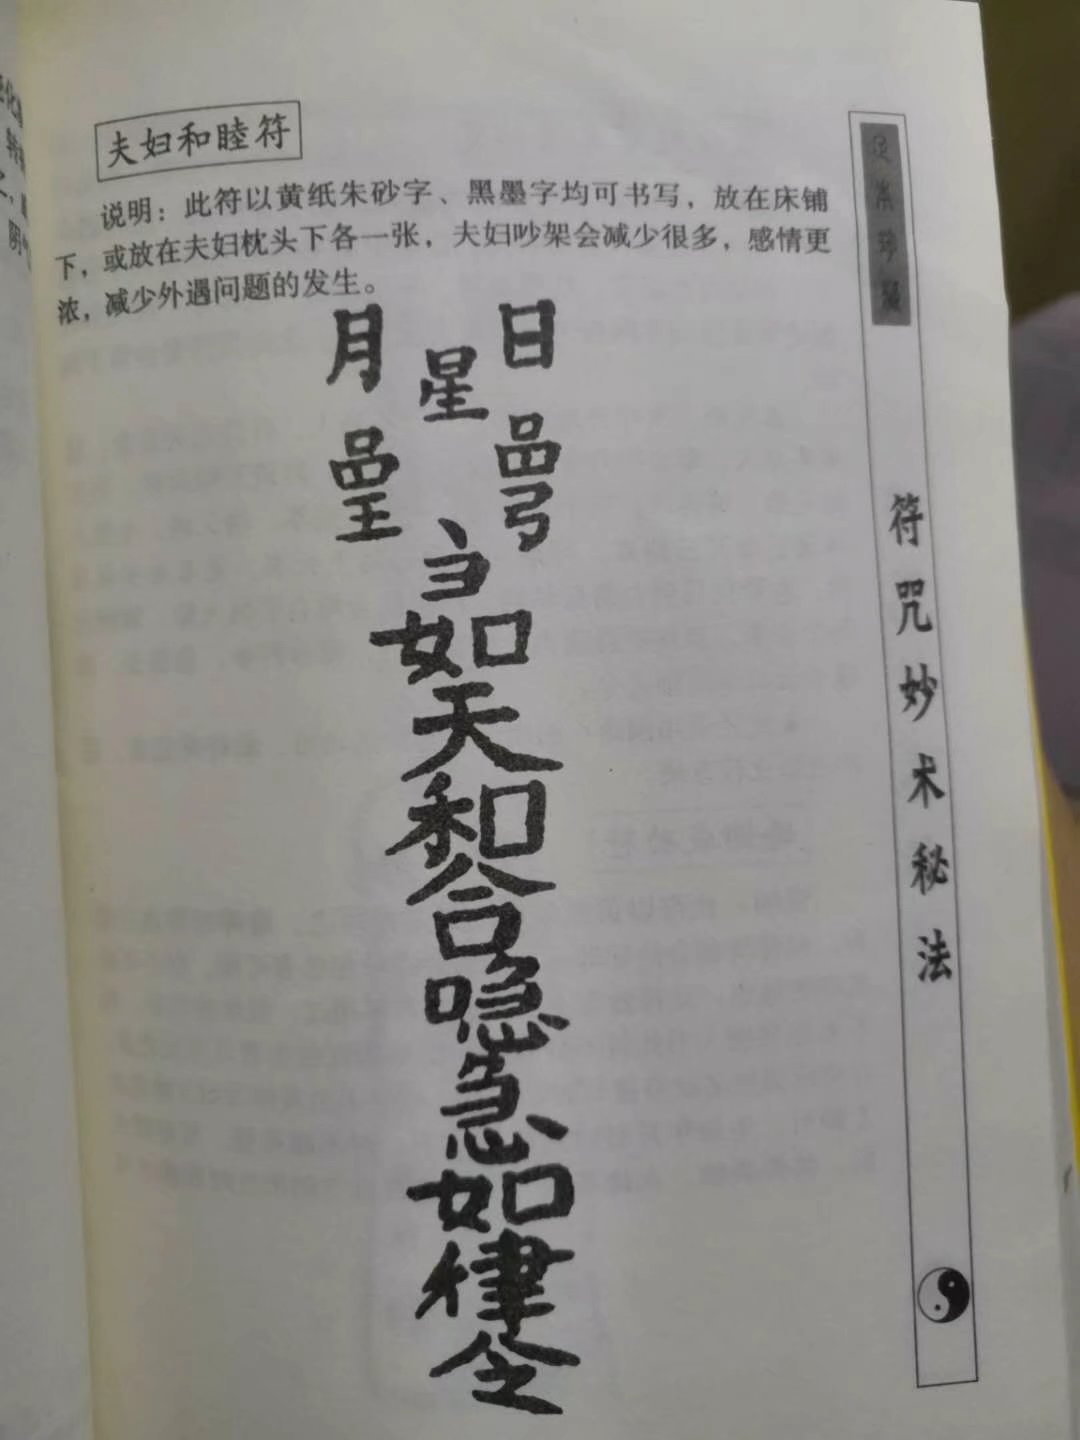 夫妇和睦符
说明：此符以黄纸朱砂字、黑墨字均可书写，放在床铺
下，或放在夫妇枕头下各一张，夫妇吵架会减少很多，感情更
浓，减少外遇问题的发生。
月
星
日
如
天
和
合
隐
急
如
律
令
符咒妙术秘法